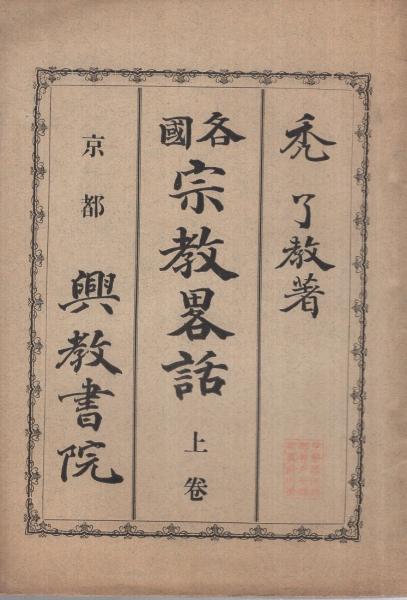 禿了教著
各國
宗教畧話 上卷
京都 興教書院